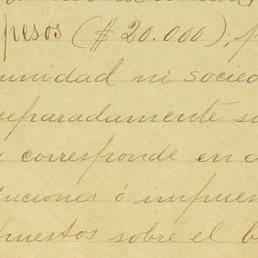 pesos ($ 20.000), p
unidad ni socied
separadamente su
y corresponde en c
uciones ó impues
puestos sobre el b